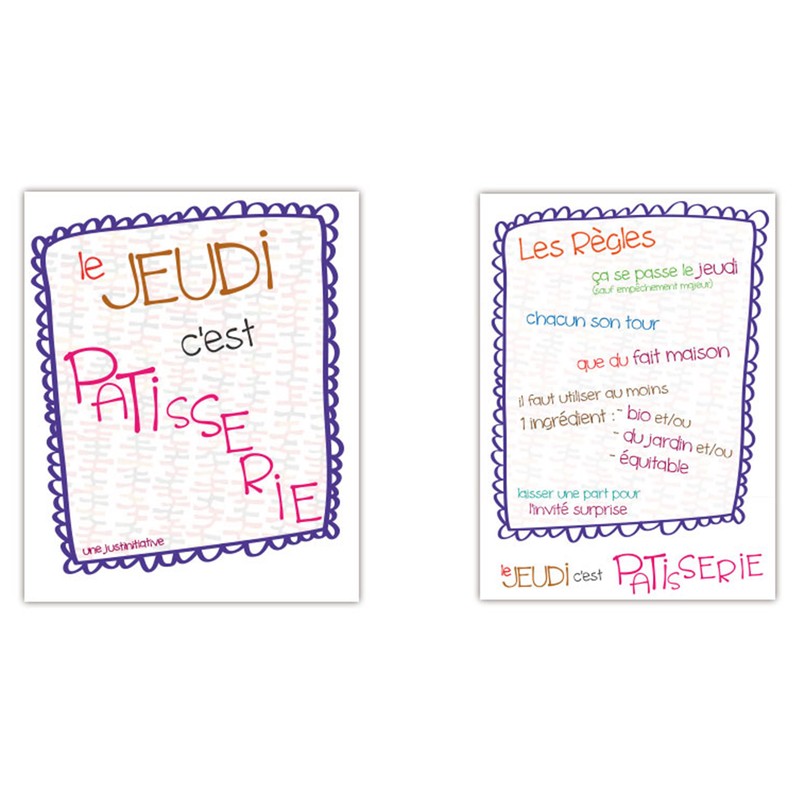 le JEUDi
c'est
PATiSSERiE
une justinitiative
Les Règles
ça se passe le jeudi
(sauf empêchement majeur)
chacun son tour
que du fait maison
il faut utiliser au moins
1 ingrédient : - bio et/ou
- du jardin et/ou
- équitable
laisser une part pour
l'invité surprise
le JEUDi c'est PATiSSERiE